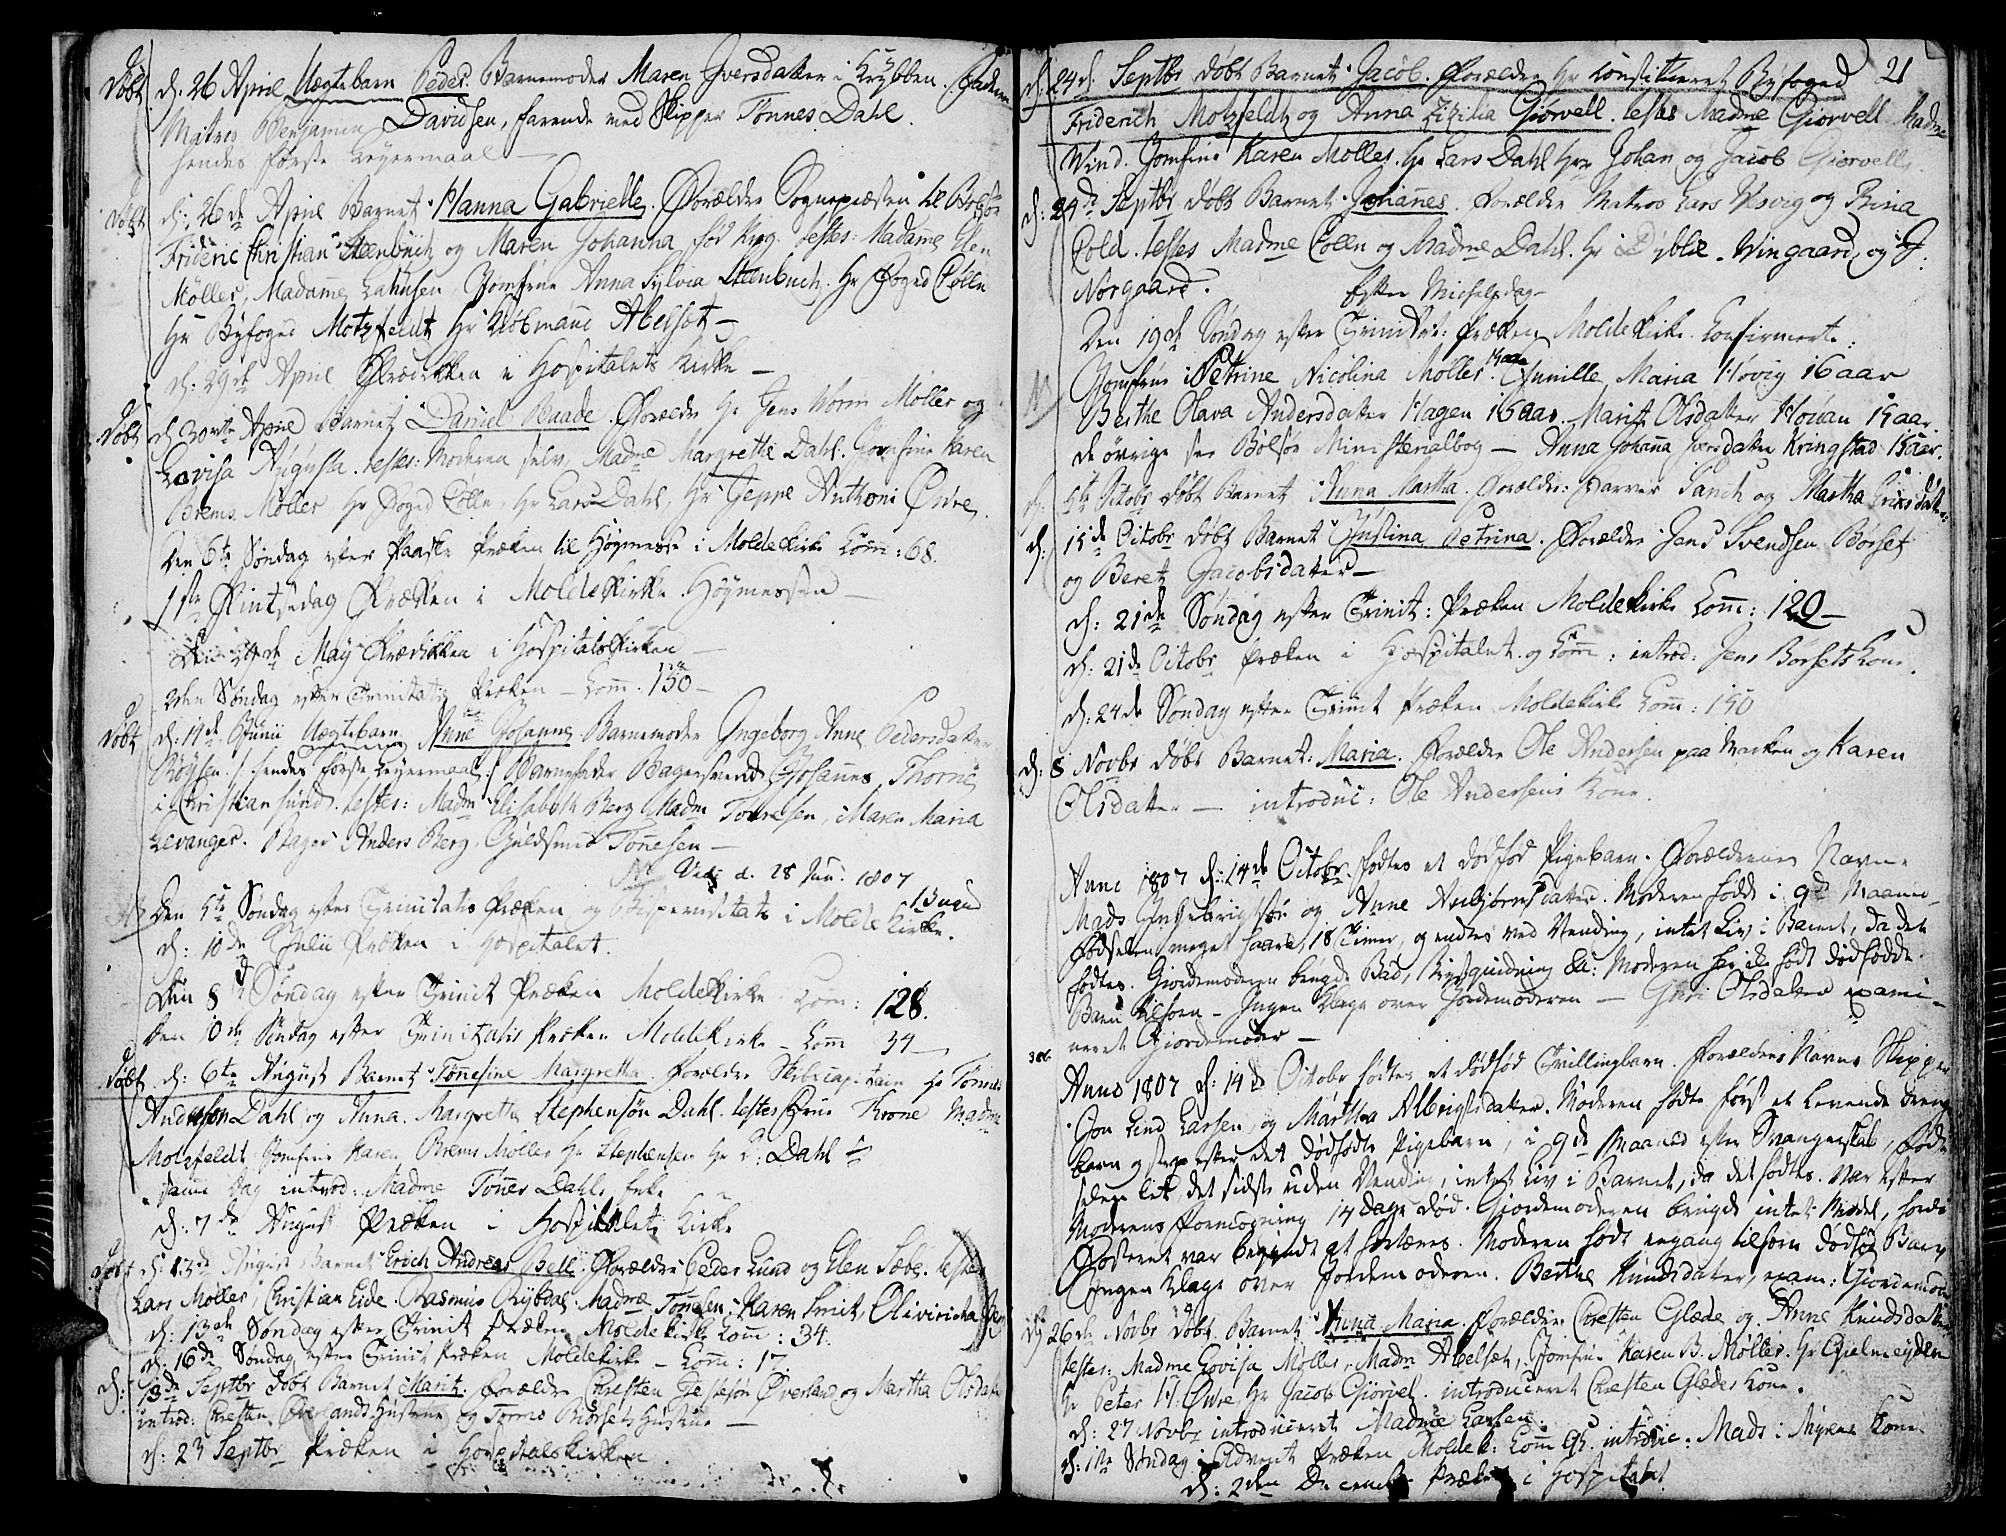 Døbt d. 26 April Uægtebarn Peder Barnemoder Maren Iversdatter i Krybben. Faderen
Matros Benjamin Davidsen, farende med Skipper Tønnes Dahl.
hendes første Leyermaal
Døbt d: 26de April Barnet Hanna Gabrielle. Forældre Sognepræsten til Bolsøe
Frideric Christian Steenbuch og Maren Johanna, fød Krog. testes: Madame Elen
Møller, Madame Lahnsen, Jomfrue Anna Sylvia Steenbuch. Hr Foged Cølln
Hr Byfoged Motzfeldt Hr Kiøbmand Abelset
d. 29de April Prædikken i Hospitalets Kirke
Døbt d 30te April Barnet Daniel Baade. Forældre Hr Jens Worm Møller og
Lovisa Augusta. testes: Moderen selv, Madme Margrethe Dahl. Jomfrue Karen
Brems Møller, Hr Foged Cølln, Hr Lars Dahl, Hr Jeppe Anthoni Øvre.
Den 6te Søndag efter Paaske Præken til Høymesse i Moldekirke Com̄: 68.
1ste Pintsedag Præken i Moldekirke. Høymessen
Den 24de May Prædikken i Hospitalskirken
2den Søndag efter Trinitatis Præken Com̄. 150
Døbt d: 14de Junii Uægtebarn Anne Johanne Barnemoder Ingeborg Anne Pedersdatter
Røysen. / hendes første Leyermaal / Barnefader Bagersvend Johannes Thorris
i Christiansund. testes: Madm Elisabeth Berg Madm Tønnesen, Maren Maria
Levanger. Bager Anders Berg, Guldsmed Tønnesen
NB Vidi d. 28 Jun. 1807
Den 5te Søndag efter Trinitatis Præken og Bispevisitats i Molde Kirke.
d: 10de Julii Præken i Hospitalet.
Den 8de Søndag efter Trinit Præken Moldekirke Com̄: 128.
Den 10de Søndag efter Trinitatis Præken Moldekirke Com̄ 34
Døbt d: 6te August Barnet Tønnesine Margretha. Forældre Skibscaptain Hr Tønnes
Andreson Dahl og Anna Margrethe Stephensøn Dahl. testes Frue Krone Madme
Motzfeldt Jomfrue Karen Brems Møller Hr Stephensen Hr P: Dahl
samme Dag introd: Madme Tønnes Dahls
d: 7de August Præken i Hospitalets Kirke
Døbt d: 13de August Barnet Erich Andreas Bell. Forældre Peder Lund og Elen Sæbe. testes
Lars Møller, Christian Eide Rasmus Rybdal Madme Tønnesen, Karen Smit, Olivircha
d. 13de Søndag efter Trinit Præken Moldekirke Com̄: 34.
d. 16de Søndag efter Trinit Præken Moldekirke Com̄: 17.
d: 13de Septbr døbt Barnet Marit. Forældre Christen Jestesøn Øverland og Martha Olsdatter
introd: Christen Øverlands Hustrue og Tørris Biørsets Hustrue
d: 23 Septbr Præken i Hospitalskirken
21
d: 24d: Septbr døbt Barnet Jacob. Forældre Hr Constitueret Byfoged
Friderich Motzfeldt og Anna Zizilia Giørvell. testes Madme Giørvell, Madme
Wind. Jomfrue Karen Møller. Hr Lars Dahl Hrr Johan og Jacob Giørvell.
d: 24de Septbr døbt Barnet Johannes. Forældre Matros Lars Visvig og Rina
Cold. testes Madme Cølln og Madme Dahl. Hr Dyblie. Wingaard, og J:
Norgaard.
Efter Michelsdag
Den 19de Søndag efter Trinitat: Præken Moldekirke. Confirmerte:
Jomfrue Petrine Nicolina Møller. Gunille Maria Høvig 16 aar
Berthe Olava Andersdatter Hagen 16 aar. Marit Olsdatter Houan 15 aar.
de øvrige see Bolsøe Ministerialbog — Anna Johanna Iversdatter Kringstad 15 aar.
d: 5te Octobr døbt Barnet Anna Martha. Forældre: Farver Sanch og Martha Ericsdatter
d: 15de Octobr døbt Barnet Justina Petrina. Forældre Jens Svendsen Børset
og Beret Jacobsdatter
d: 21de Søndag efter Trinit: Præken Moldekirke Com̄: 120
d: 21de Octobr Præken i Hospitalet og Com̄: introd: Jens Borsets Kone.
d: 24de Søndag efter Trinit Præken Moldekirke Com̄: 150
d: 8 Novbr døbt Barnet: Maria. Forældre Ole Andersen paa Marken og Karen
Olsdatter — introduc: Ole Andersens Kone.
Anno 1807 d: 14de Octobr. fødtes et dødfød Pigebarn. Forældrenes Navne
Mads Ingebrigtsøn og Anne Anbjørnsdatter. Moderen fødde i 9de Maaned
Fødselen meget haard, 18 Timer, og endtes ved Vending, intet Liv i Barnet, da det
fødtes. Giordemoderen brugde Bad, &c: Moderen har ikke født dødfødde
Barn tilforn — Ingen Klage over Jordemoderen — Guri Olsdatter exami-
neret Giordemoder —
Anno 1807 d: 14de Octobr fødtes et dødfød Tvillingbarn. Forældres Navne Skipper
Jon Lind Larsen, og Martha Albrigtsdatter. Moderen fødte først et levende Drenge
barn og strax efter det dødfødte Pigebarn, i 9de Maaned efter Svangerskab, Føds
selen let, det sidste uden Vending, intet Liv i Barnet, da det fødtes. Var efter
Moderens Formodning 14 Dage død. Giordemoderen brugde intet Middel, fordi
Fosteret var begyndt at forraadnes. Moderen født engang tilforn dødfød Barn
Ingen Klage over Jordemoderen. Berthe Knudsdatter, exam: Giordemoder
d: 26de Novbr døbt Barnet Anna Maria. Forældre Christen Glæde og Anne Knudsdatter
testes: Madme Lovisa Møller, Madm Abelset, Jomfrue Karen B. Møller. Hr Gielmeyden
Hr Peter H: Øvre Hr Jacob Giørvel. introduceret Christen Glædes Kone.
d: 27 Novbr introduceret Madme Larsen.
d: 1ste Søndag i Advent Præken Moldek: Com̄ 95. introduc: Mads i Myren Kone
d: 2den December Præken i Hospitalet